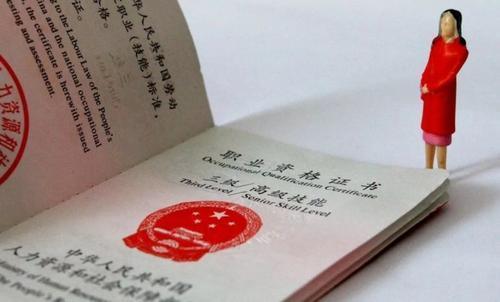 证。
格。
g to the Labour Law of the People's
ina and the national occupational
, the certificate is herewith issued
esting and assessment.
中华人民共和国劳动
职业(技能)标准,
力资源和社
职业资格证书
Occupational Qualification Certificate
三级/高级技能
Third Level / Senior Skill Level
中华人民共和国
人力资源和社会保障部
Ministry of Human Resources
The People's Rep